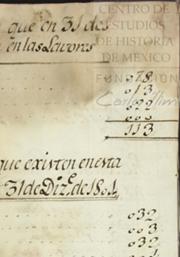 que en 31 de
en las Lavores
CENTRO DE
ESTUDIOS
DE HISTORIA
DE MÉXICO
FUNDACIÓN
Carlos Slim
078
013
022
113
que existen en esta
31 de Diz.e de 1801
032
003
032